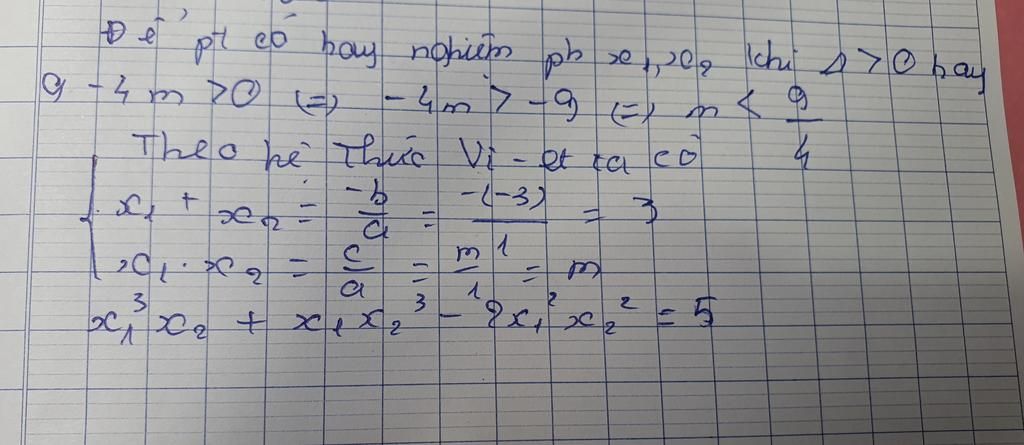 Để pt có hay nghiệm pb x₁, x₂ khi Δ > 0 hay
9 - 4m > 0 (=) -4m > -9 (=) m < 9/4
Theo hệ thức Vi-et ta có
{ x₁ + x₂ = -b/a = -(-3)/1 = 3
x₁ . x₂ = c/a = m/1 = m
x₁³x₂ + x₁x₂³ - 2x₁²x₂² = 5